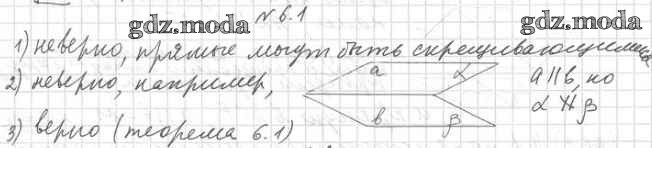 № 6.1
gdz.moda
gdz.moda
1) неверно, прямые могут быть скрещивающимися
2) неверно, например, a α b β a∥b, но
α ∦ β
3) верно (теорема 6.1)